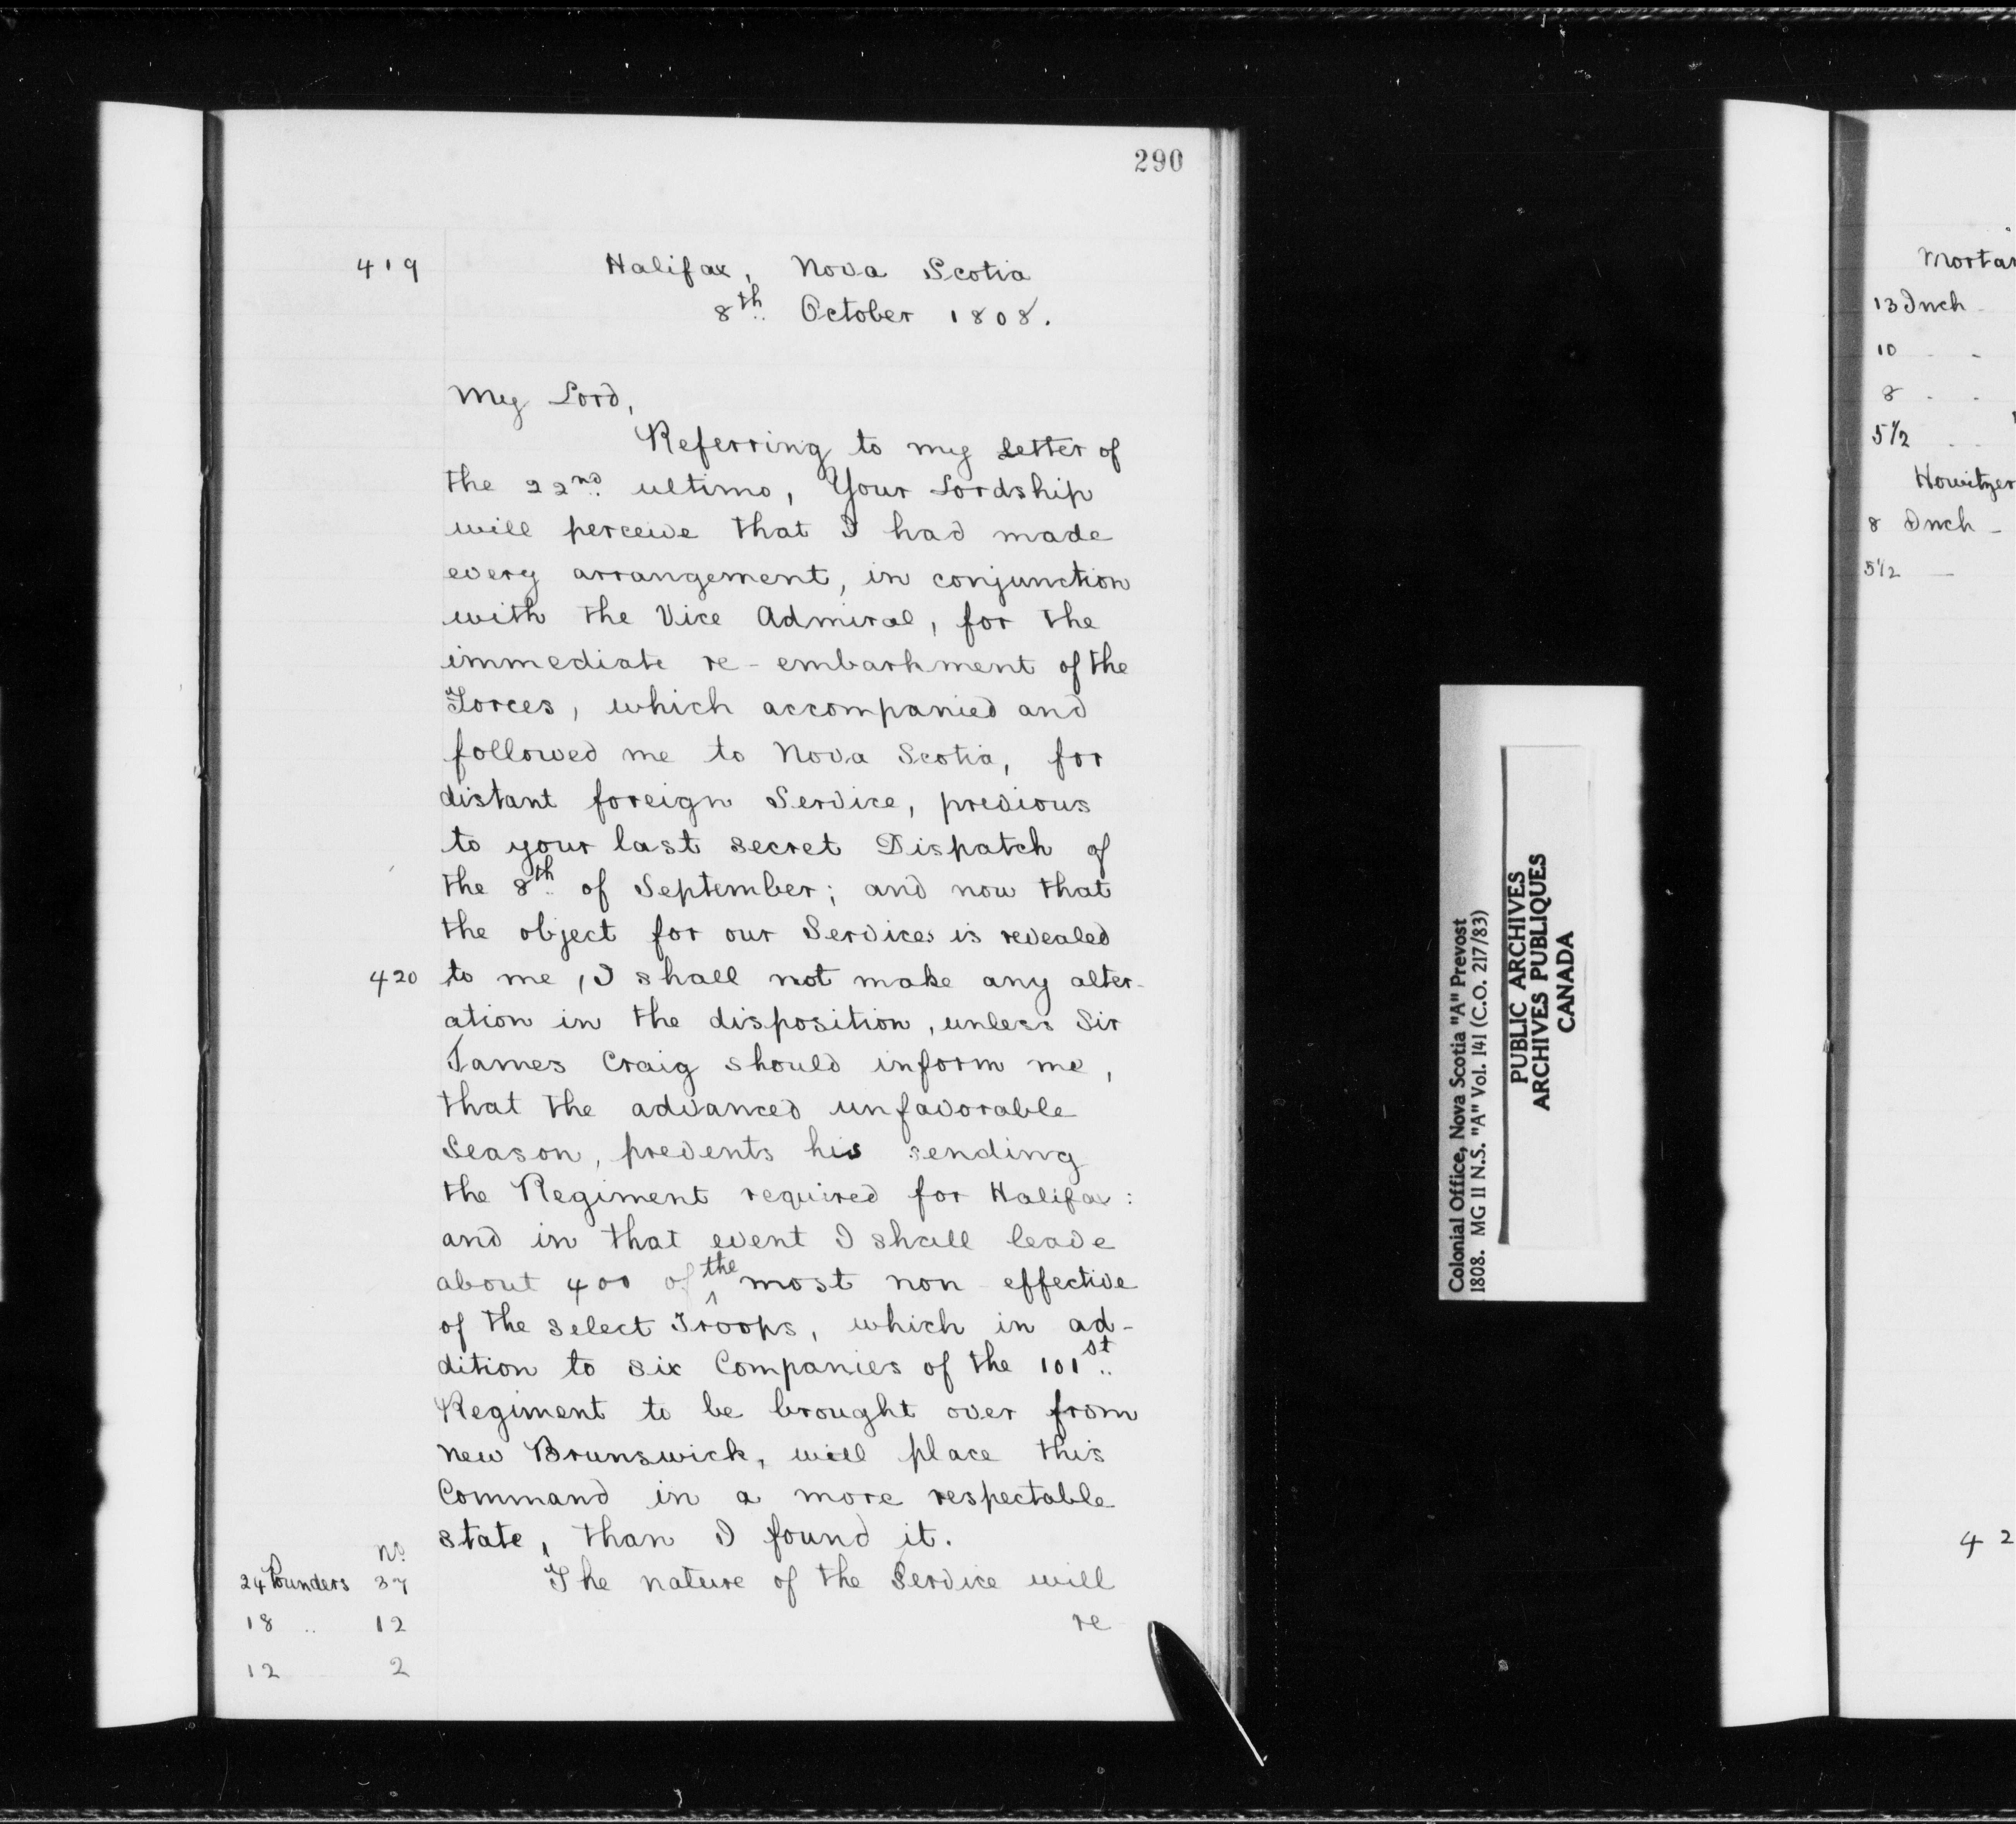 290
419
Halifax, Nova Scotia
8th October 1808.
My Lord,
Referring to my Letter of
the 22nd ultimo, Your Lordship
will perceive that I had made
every arrangement, in conjunction
with the Vice Admiral, for the
immediate re-embarkment of the
Forces, which accompanied and
followed me to Nova Scotia, for
distant foreign Service, previous
to your last secret Dispatch of
the 8th of September; and now that
the object for our Services is revealed
420 to me, I shall not make any alter-
ation in the disposition, unless Sir
James Craig should inform me,
that the advanced unfavorable
Season, prevents his sending
the Regiment required for Halifax:
and in that event I shall leave
about 400 of the most non effective
of the select Troops, which in ad-
dition to six Companies of the 101st
Regiment to be brought over from
New Brunswick, will place this
Command in a more respectable
state, than I found it.
The nature of the Service will
re
No.
24 Pounders 37
18 .. 12
12 2
Colonial Office, Nova Scotia "A" Prevost
1808. MG 11 N.S. "A" Vol. 141 (C.O. 217/83)
PUBLIC ARCHIVES
ARCHIVES PUBLIQUES
CANADA
13 Inch -
10 - -
8 - -
5 1/2 - -
8 Inch -
5 1/2 -
42